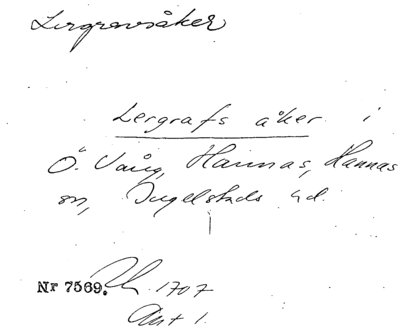 Lergravsåker
Lergrafs åker i
Ö. Vång, Hannas, Hannas
sn, Ingelstads hd.
Nr 7569. 1707
Akt 1.